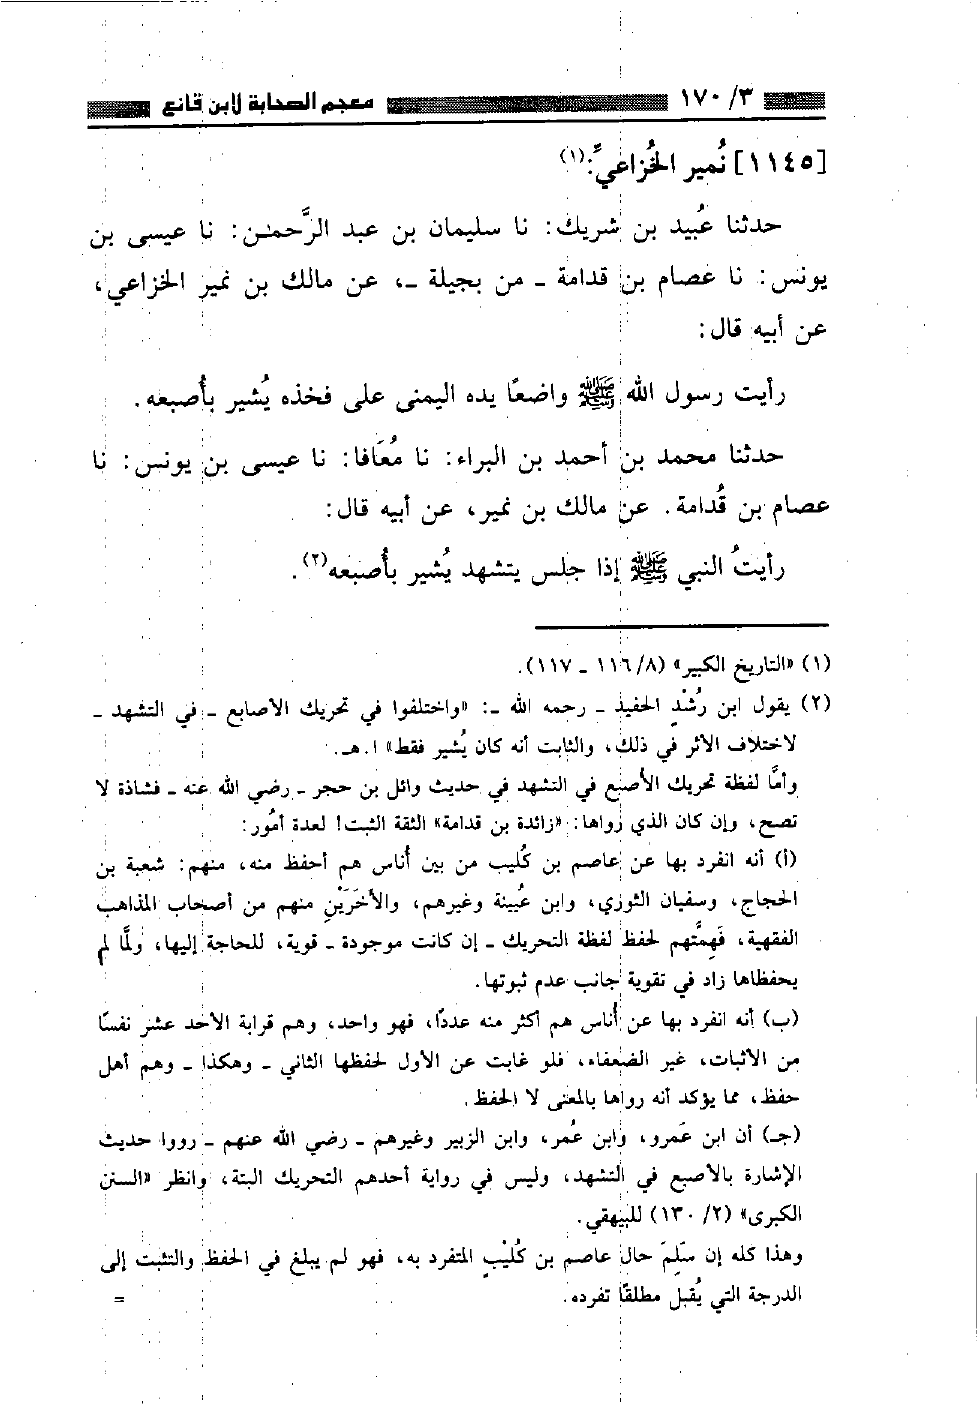 ٣/ ١٧٠ معجم الصحابة لابن قانع
[١١٤٥] نُمير الخُزاعيّ:(١)
حدثنا عُبيد بن شريك: نا سليمان بن عبد الرَّحمٰن: نا عيسى بن
يونس: نا عصام بن قدامة ـ من بجيلة ـ، عن مالك بن نمير الخزاعي،
عن أبيه قال:
رأيت رسول الله ﷺ واضعًا يده اليمنى على فخذه يُشير بأُصبعه.
حدثنا محمد بن أحمد بن البراء: نا مُعَافا: نا عيسى بن يونس: نا
عصام بن قُدامة. عن مالك بن نمير، عن أبيه قال:
رأيتُ النبي ﷺ إذا جلس يتشهد يُشير بأُصبعه(٢).
(١) «التاريخ الكبير» (٨/ ١١٦ ـ ١١٧).
(٢) يقول ابن رُشْدٍ الحفيد ـ رحمه الله ـ: «واختلفوا في تحريك الأصابع ـ في التشهد ـ
لاختلاف الأثر في ذلك، والثابت أنه كان يُشير فقط» ا.هـ.
وأمَّا لفظة تحريك الأصبع في التشهد في حديث وائل بن حجر ـ رضي الله عنه ـ فشاذة لا
تصح، وإن كان الذي رواها: «زائدة بن قدامة» الثقة الثبت! لعدة أمُور:
(أ) أنه انفرد بها عن عاصم بن كُليب من بين أُناس هم أحفظ منه، منهم: شعبة بن
الحجاج، وسفيان الثوري، وابن عُيينة وغيرهم، والأخَرَيْنِ منهم من أصحاب المذاهب
الفقهية، فَهِمَّتهم لحفظ لفظة التحريك ـ إن كانت موجودة ـ قوية، للحاجة إليها، ولمَّا لم
يحفظاها زاد في تقوية جانب عدم ثبوتها.
(ب) أنه انفرد بها عن أُناس هم أكثر منه عددًا، فهو واحد، وهم قرابة الأحد عشر نفسًا
من الأثبات، غير الضعفاء، فلو غابت عن الأول لحفظها الثاني ـ وهكذا ـ وهم أهل
حفظ، مما يؤكد أنه رواها بالمعنى لا الحفظ.
(جـ) أن ابن عَمرو، وابن عُمر، وابن الزبير وغيرهم ـ رضي الله عنهم ـ رووا حديث
الإشارة بالأصبع في التشهد، وليس في رواية أحدهم التحريك البتة، وانظر «السنن
الكبرى» (٢/ ١٣٠) للبيهقي.
وهذا كله إن سَلِمَ حال عاصم بن كُلَيْبٍ المتفرد به، فهو لم يبلغ في الحفظ والتثبت إلى
الدرجة التي يُقبل مطلقًا تفرده. =